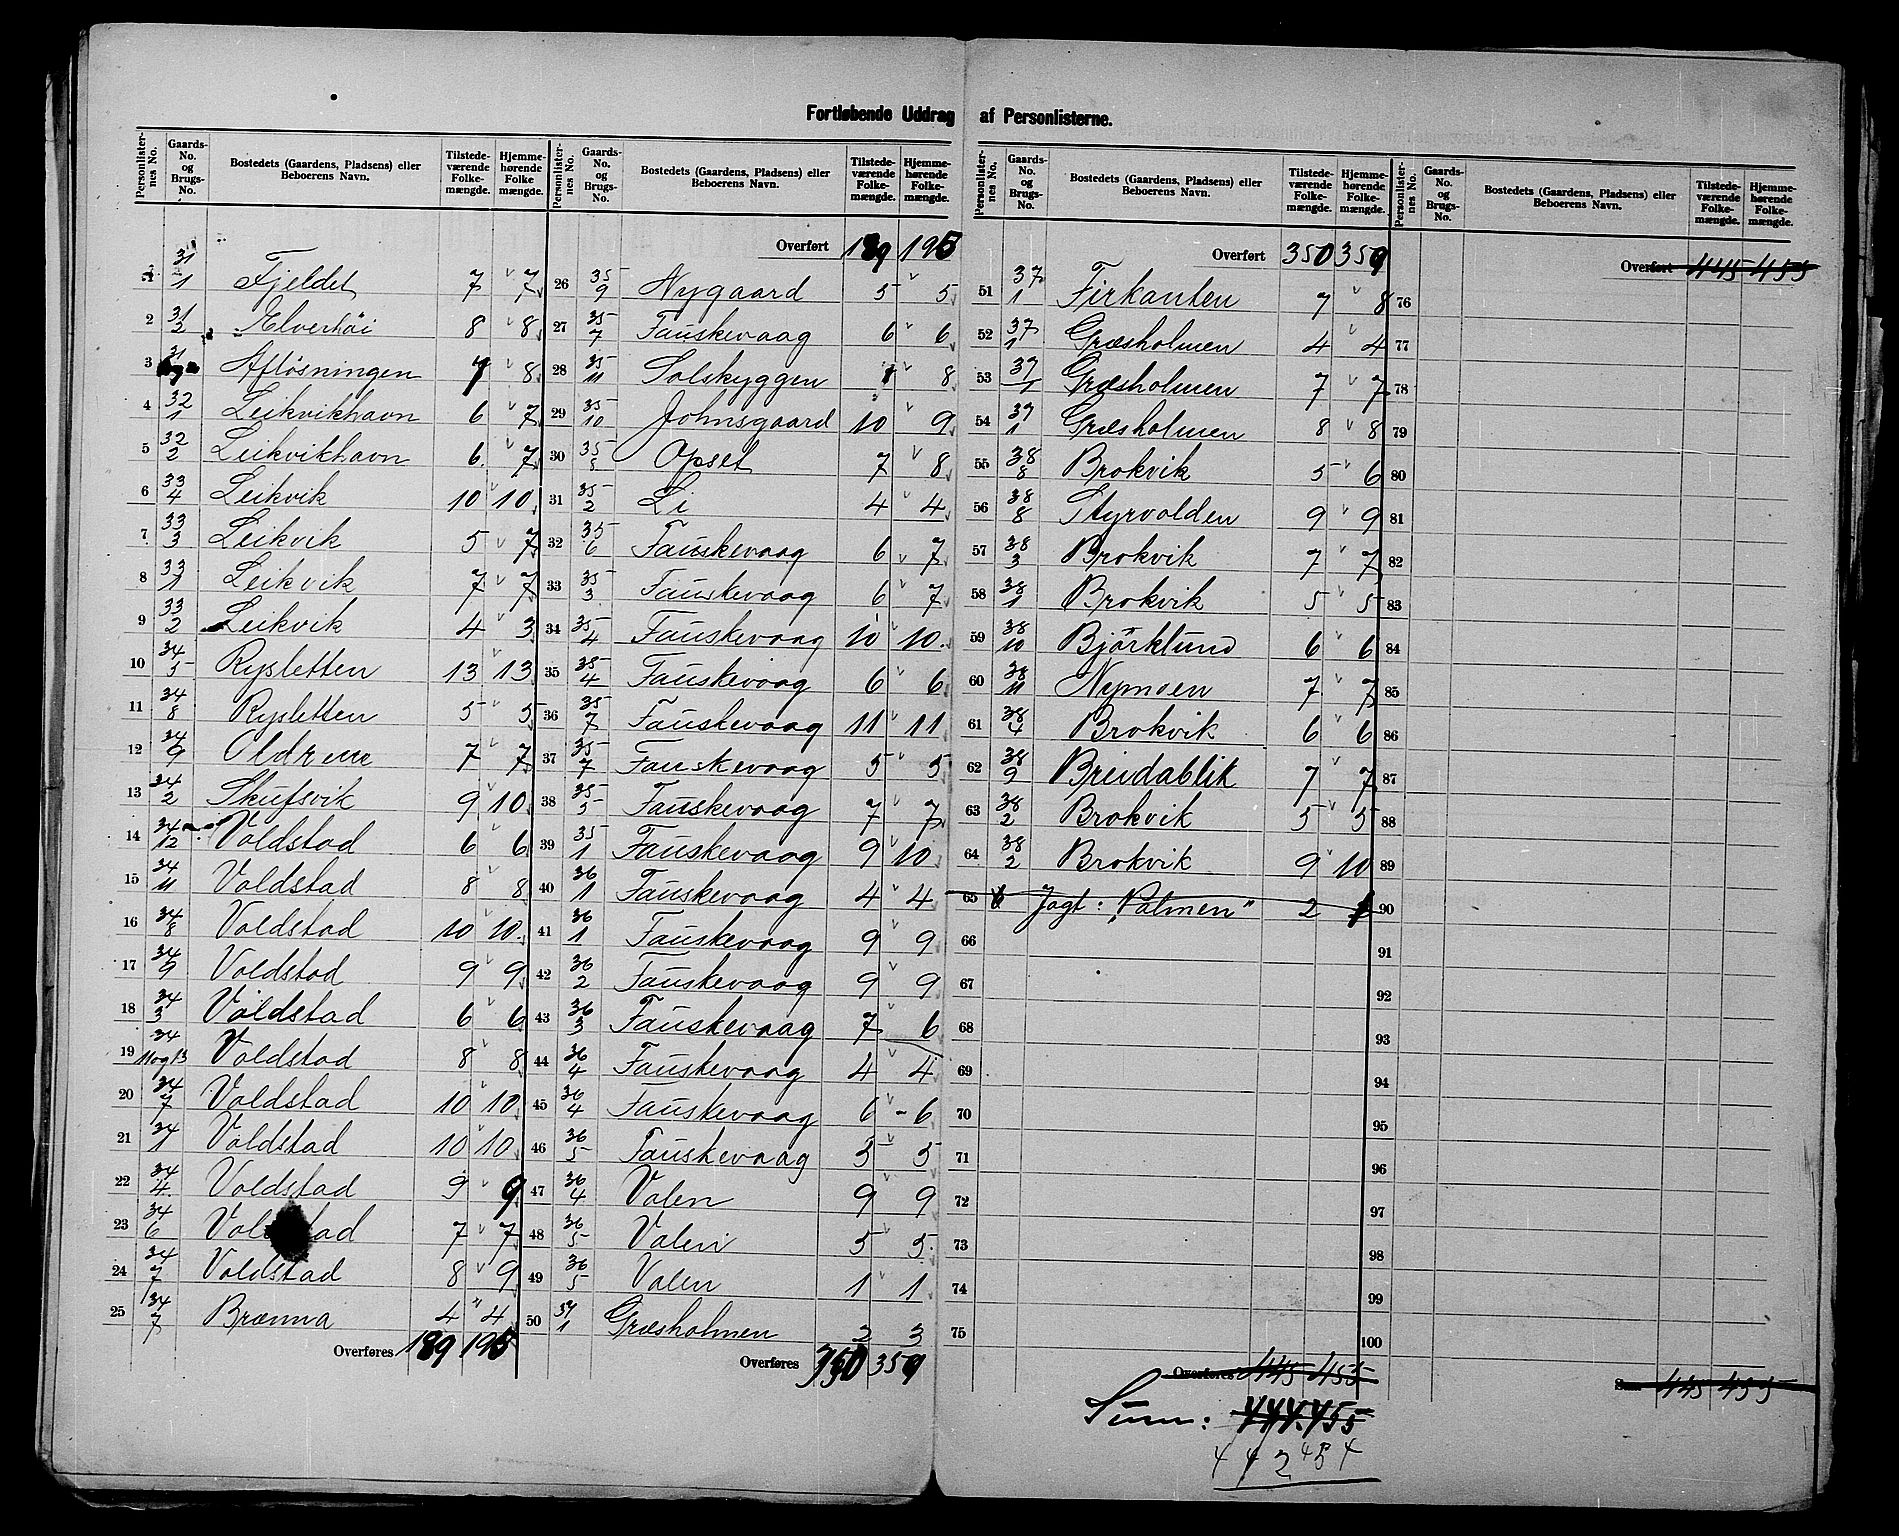 Fortløbende Uddrag af Personlisterne.
Personlisternes No. Gaards-No. og Brugs-No. Bostedets (Gaardens, Pladsens) eller Beboerens Navn. Tilstedeværende Folkemængde. Hjemmehørende Folkemængde.
1 31/1 Fjeldet 7 7
2 31/2 Elverhöi 8 8
3 31 Aflösningen 7 8
4 32/1 Leikvikhavn 6 7
5 32/2 Leikvikhavn 6 7
6 33/4 Leikvik 10 10
7 33/3 Leikvik 5 7
8 33/1 Leikvik 7 7
9 33/2 Leikvik 4 3
10 34/5 Rysletten 13 13
11 34/8 Rysletten 5 5
12 34/9 Oldren 7 7
13 34/2 Skufsvik 9 10
14 34/12 Voldstad 6 6
15 34/11 Voldstad 8 8
16 34/8 Voldstad 10 10
17 34/9 Voldstad 9 9
18 34/3 Voldstad 6 6
19 34/11 og 13 Voldstad 8 8
20 34/7 Voldstad 10 10
21 34/1 Voldstad 10 10
22 34/4 Voldstad 9 9
23 34/6 Voldstad 7 7
24 34/7 Voldstad 8 9
25 34/7 Brænna 4 4
Overføres 189 195
Personlisternes No. Gaards-No. og Brugs-No. Bostedets (Gaardens, Pladsens) eller Beboerens Navn. Tilstedeværende Folkemængde. Hjemmehørende Folkemængde.
Overført 189 195
26 35/9 Nygaard 5 5
27 35/7 Fauskevaag 6 6
28 35/11 Solskyggen 8
29 35/10 Johnsgaard 10 9
30 35/8 Opset 7 8
31 35/2 Li 4 4
32 35/6 Fauskevaag 6 7
33 35/3 Fauskevaag 6 7
34 35/4 Fauskevaag 10 10
35 35/4 Fauskevaag 6 6
36 35/7 Fauskevaag 11 11
37 35/7 Fauskevaag 5 5
38 35/5 Fauskevaag 7 7
39 35/1 Fauskevaag 9 10
40 36/1 Fauskevaag 4 4
41 36/1 Fauskevaag 9 9
42 36/2 Fauskevaag 9 9
43 36/3 Fauskevaag 7 6
44 36/4 Fauskevaag 4 4
45 36/4 Fauskevaag 6 - 6
46 36/5 Fauskevaag 5 5
47 36/4 Valen 9 9
48 36/5 Valen 5 5
49 36/5 Valen 1 1
50 37/1 Græsholmen 2 3
Overføres 350 359
Personlisternes No. Gaards-No. og Brugs-No. Bostedets (Gaardens, Pladsens) eller Beboerens Navn. Tilstedeværende Folkemængde. Hjemmehørende Folkemængde.
Overført 350 359
51 37/1 Firkanten 7 8
52 37/1 Græsholmen 4 4
53 37/1 Græsholmen 7 7
54 37/1 Græsholmen 8 8
55 38/8 Brokvik 5 6
56 38/8 Styrvolden 9 9
57 38/3 Brokvik 7 7
58 38/1 Brokvik 5 5
59 38/10 Björklund 6 6
60 38/11 Nymoen 7 7
61 38/4 Brokvik 6 6
62 38/9 Breidablik 7 7
63 38/2 Brokvik 5 5
64 38/2 Brokvik 9 10
65 Jagt: "Palmen" 2
66
67
68
69
70
71
72
73
74
75
Overføres 445 455
Sum: 444 455
442 454
Personlisternes No. Gaards-No. og Brugs-No. Bostedets (Gaardens, Pladsens) eller Beboerens Navn. Tilstedeværende Folkemængde. Hjemmehørende Folkemængde.
Overført 445 455
76
77
78
79
80
81
82
83
84
85
86
87
88
89
90
91
92
93
94
95
96
97
98
99
100
Sum 445 455